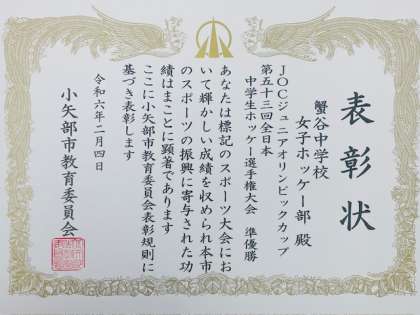 表彰状
蟹谷中学校
女子ホッケー部 殿
JOCジュニアオリンピックカップ
第五十三回全日本
中学生ホッケー選手権大会 準優勝
あなたは標記のスポーツ大会にお
いて輝かしい成績を収められ本市
のスポーツの振興に寄与された功
績はまことに顕著であります
ここに小矢部市教育委員会表彰規則に
基づき表彰します
令和六年二月四日
小矢部市教育委員会